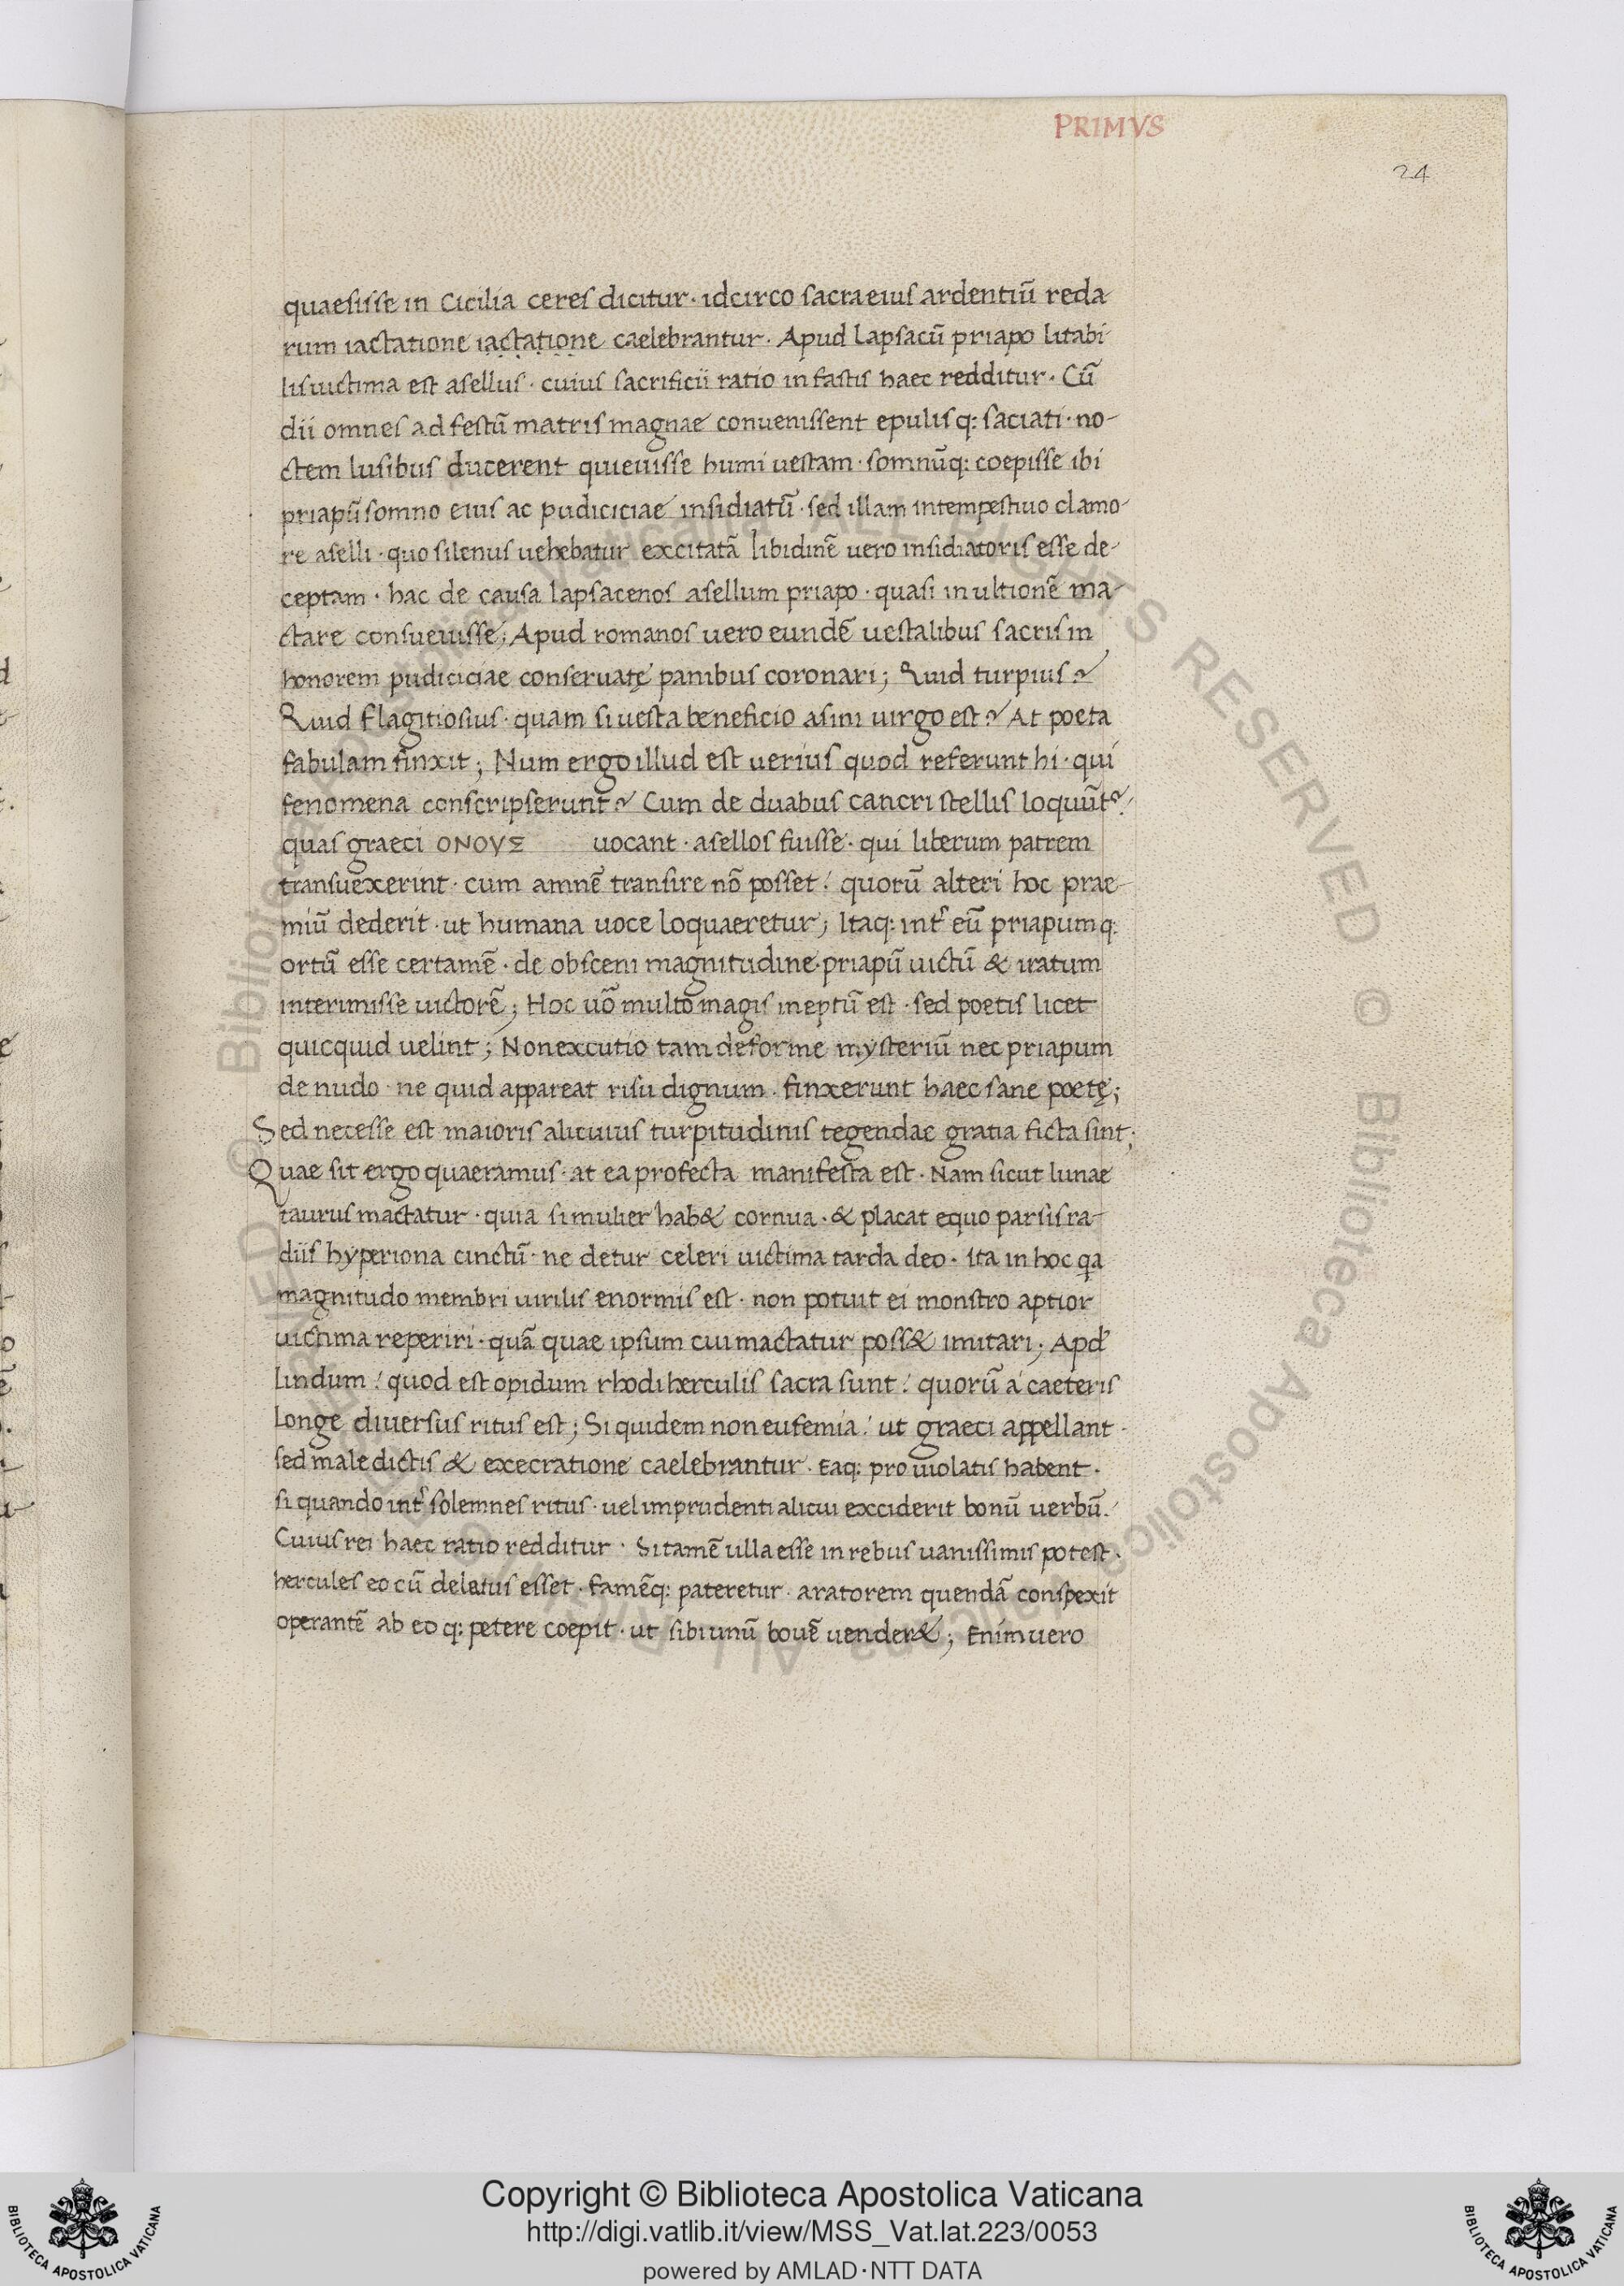 PRIMVS
24
quaesisse in Cicilia ceres dicitur · idcirco sacra eius ardentiū reda
rum iactatione iactatione caelebrantur · Apud Lapsacū priapo litabi
lis uictima est asellus · cuius sacrificii ratio in fastis haec redditur · Cū
dii omnes ad festū matris magnae conuenissent epulisq: saciati · no-
ctem lusibus ducerent quieuisse humi uestam · somnūq: coepisse ibi
priapū somno eius ac pudiciciae insidiatū · sed illam intempestiuo clamo-
re aselli · quo silenus uehebatur excitatā libidinē uero insidiatoris esse de-
ceptam · hac de causa lapsacenos asellum priapo · quasi in ultionē ma-
ctare consueuisse; Apud romanos uero eundē uestalibus sacris in
honorem pudiciciae conseruatę panibus coronari; Quid turpius?
Quid flagitiosius · quam si uesta beneficio asini uirgo est? At poeta
fabulam finxit; Num ergo illud est uerius quod referunt hi · qui
fenomena conscripserunt? Cum de duabus cancri stellis loquūt̉
quas graeci ONOYΣ uocant · asellos fuisse · qui liberum patrem
transuexerint · cum amnē transire nō posset! quorū alteri hoc prae-
miū dederit · ut humana uoce loquaeretur; Itaq: int̉ eū priapumq:
ortū esse certamē · de obsceni magnitudine · priapū uictū & iratum
interimisse uictorē; Hoc uō multo magis ineptū est · sed poetis licet
quicquid uelint; Non excutio tam deforme mysteriū nec priapum
de nudo · ne quid appareat risu dignum · finxerunt haec sane poetę;
Sed necesse est maioris alicuius turpitudinis tegendae gratia ficta sint;
Quae sit ergo quaeramus · at ea profecta manifesta est · Nam sicut lunae
taurus mactatur · quia simulier hab& cornua · & placat equo parsis ra-
diis hyperiona cinctū · ne detur celeri uictima tarda deo · Ita in hoc qa
magnitudo membri uirilis enormis est · non potuit ei monstro aptior
uictima reperiri · quā quae ipsum cui mactatur poss& imitari; Apd̓
Lindum! quod est opidum rhodi herculis sacra sunt! quorū a caeteris
Longe diuersus ritus est; Si quidem non eufemia! ut graeci appellant ·
sed male dictis & execratione caelebrantur · Eaq: pro uiolatis habent ·
si quando int̉ solemnes ritus · uel imprudenti alicui exciderit bonū uerbū!
Cuius rei haec ratio redditur · Si tamē ulla esse in rebus uanissimis potest ·
hercules eo cū delatus esset · famēq: pateretur · aratorem quendā conspexit
operantē ab eo q: petere coepit · ut sibi unū bouē uender&; Enim uero
Copyright © Biblioteca Apostolica Vaticana
http://digi.vatlib.it/view/MSS_Vat.lat.223/0053
powered by AMLAD·NTT DATA
BIBLIOTECA APOSTOLICA VATICANA
BIBLIOTECA APOSTOLICA VATICANA